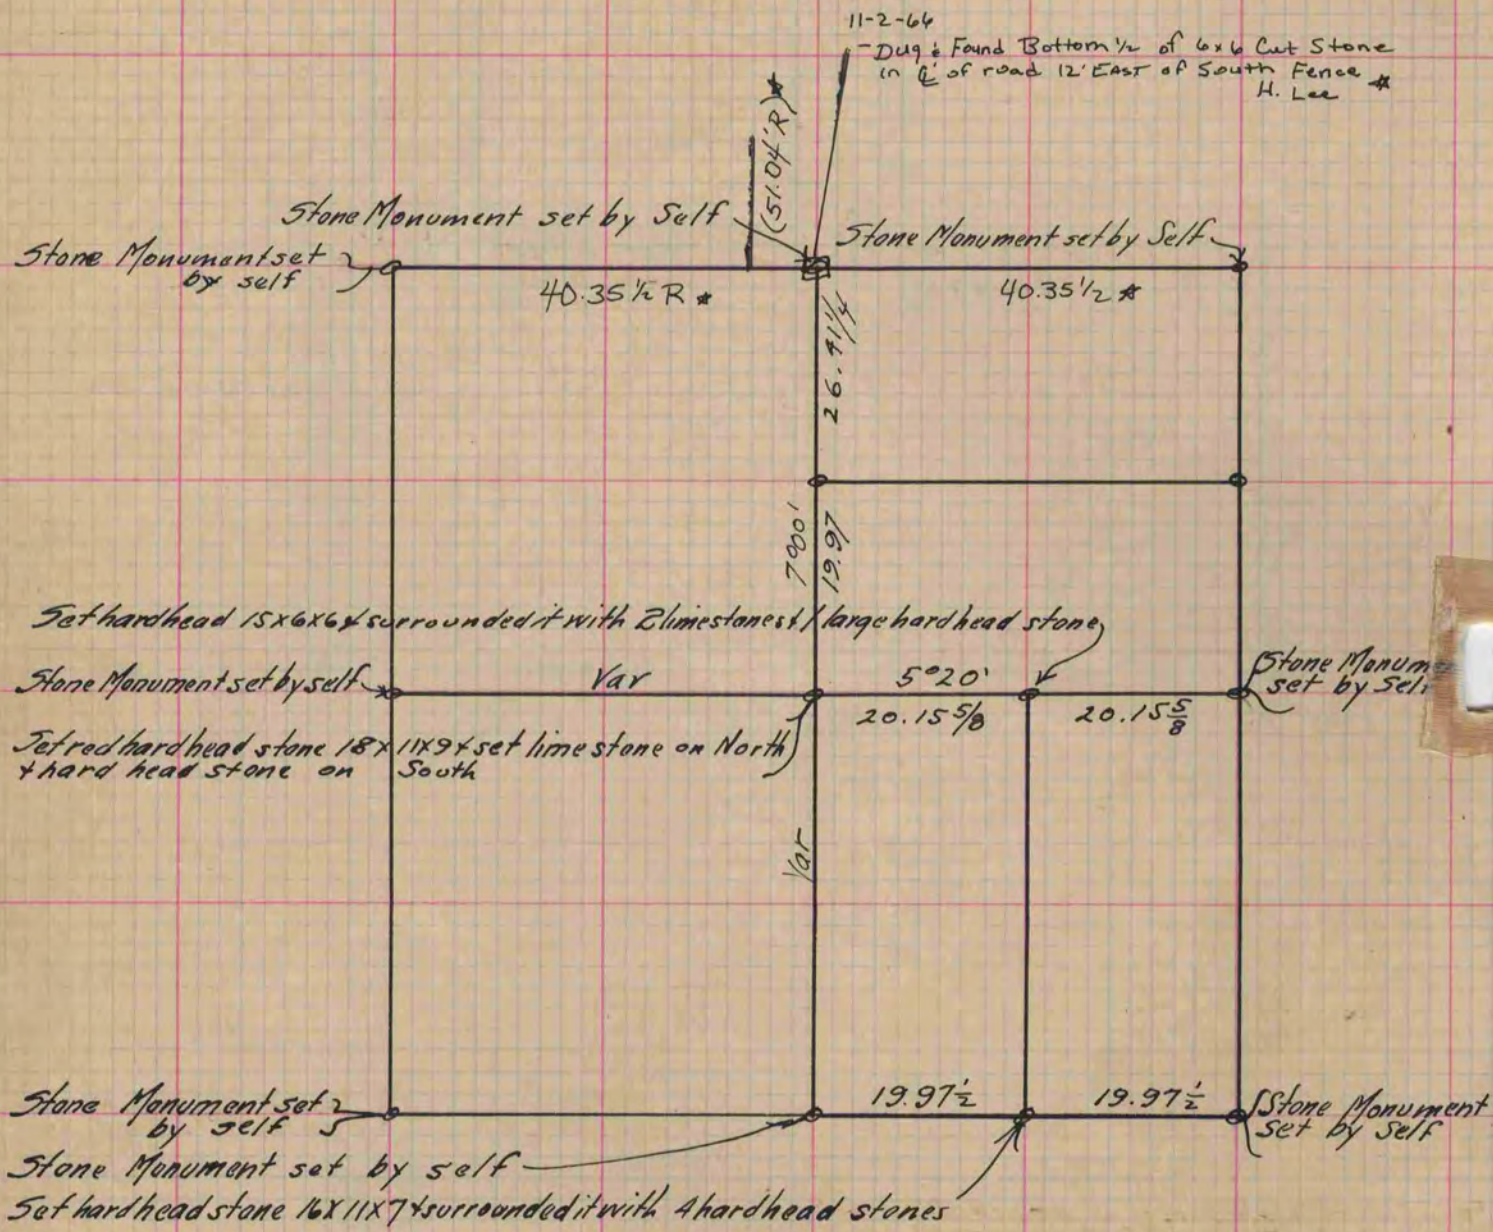 11-2-66
- Dug & Found Bottom ½ of 6x6 Cut Stone
in ℄ of road 12' EAST of South Fence *
H. Lee
(51.04' R) *
Stone Monument set by Self
Stone Monument set by Self
Stone Monument set
by self
40.35 ½ R *
40.35 ½ *
26.41¼
7°00'
19.97
Set hardhead 15x6x6 & surrounded it with 2 limestones & 1 large hardhead stone
Stone Monument set by self
Var
5°20'
20.15 5/8
20.15 5/8
Stone Monum
set by Sel
Set red hardhead stone 18x11x9 & set limestone on North
& hard head stone on South
Var
19.97½
19.97½
Stone Monument set
by self
Stone Monument
set by Self
Stone Monument set by self
Set hardhead stone 16x11x7 & surrounded it with 4 hardhead stones